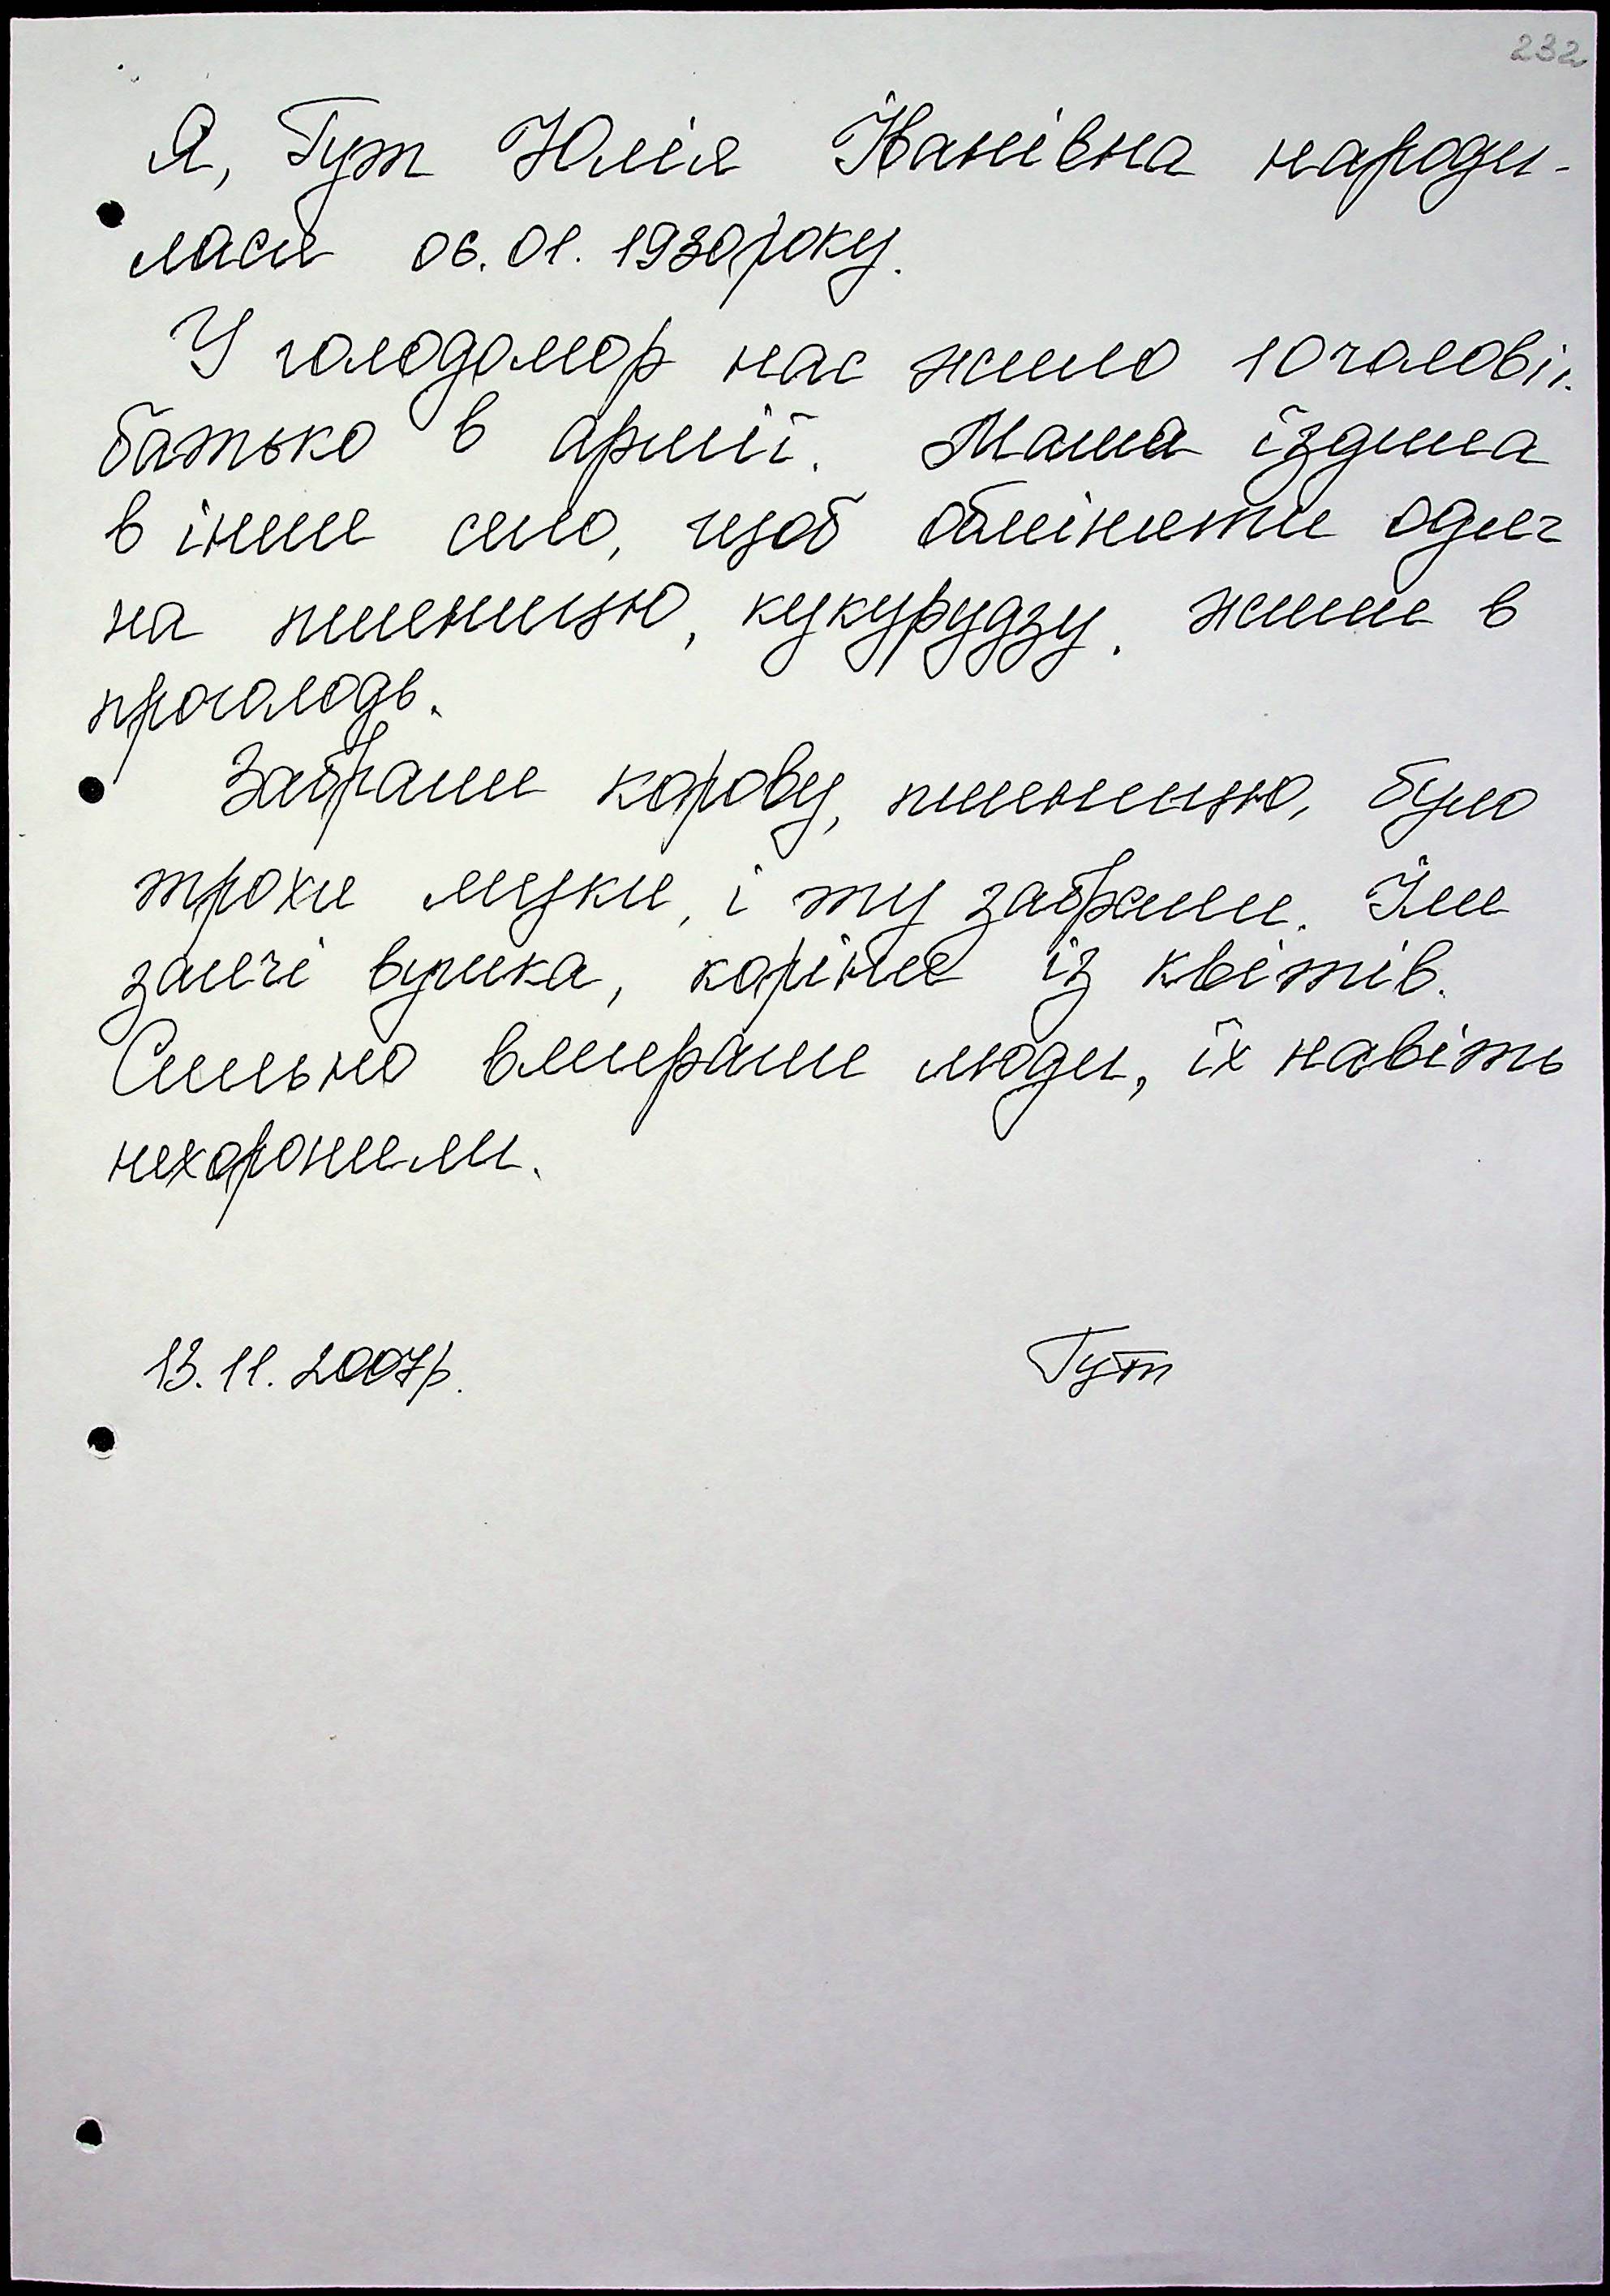 232
Я, Гут Юлія Іванівна народи-
лася 06.01.1930року.
У голодомор нас жило 10 чоловік.
батько в армії. Мама їздила
в інше село, щоб обміняти одяг
на пшеницю, кукурудзу. жили в
проголодь.
Забрали корову, пшеницю, було
трохи муки, і ту забрали. Їли
заячі вушка, коріння із квітів.
Сильно вмирали люди, їх навіть
нехоронили.
13.11.2007р. Гут